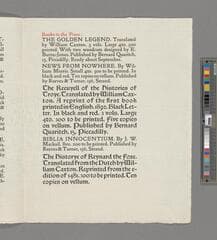 Books in the Press:
THE GOLDEN LEGEND. Translated
by William Caxton. 3 vols. Large 4to. 500
printed. With two woodcuts designed by E.
Burne-Jones. Published by Bernard Quaritch,
15, Piccadilly. Ready about September.
NEWS FROM NOWHERE. By Wil-
liam Morris. Small 4to. 300 to be printed. In
black and red. Ten copies on vellum. Published
by Reeves & Turner, 196, Strand.
The Recuyell of the Histories of
Troye. Translated by William Cax-
ton. A reprint of the first book
printed in English. 1892. Black Let-
ter. In black and red. 2 vols. Large
4to. 300 to be printed. Five copies
on vellum. Published by Bernard
Quaritch, 15, Piccadilly.
BIBLIA INNOCENTIUM. By J. W.
Mackail. 8vo. 200 to be printed. Published by
Reeves & Turner, 196, Strand.
The Historye of Reynard the Foxe.
Translated from the Dutch by Wil-
liam Caxton. Reprinted from the e-
dition of 1481. 300 to be printed. Ten
copies on vellum.